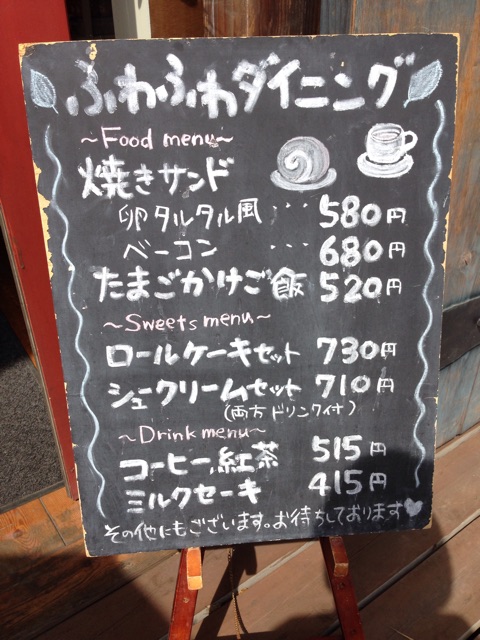 ふわふわダイニング
~Food menu~
焼きサンド
卵タルタル風 ・・・ 580円
ベーコン ・・・ 680円
たまごかけご飯 520円
~Sweets menu~
ロールケーキセット 730円
シュークリームセット 710円
(両方ドリンク付)
~Drink menu~
コーヒー,紅茶 515円
ミルクセーキ 415円
その他にもございます。お待ちしております♥